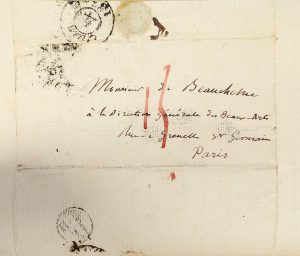 Monsieur de Beauchesne
à la Direction générale des Beaux-Arts
Rue de Grenelle St Germain
Paris
15